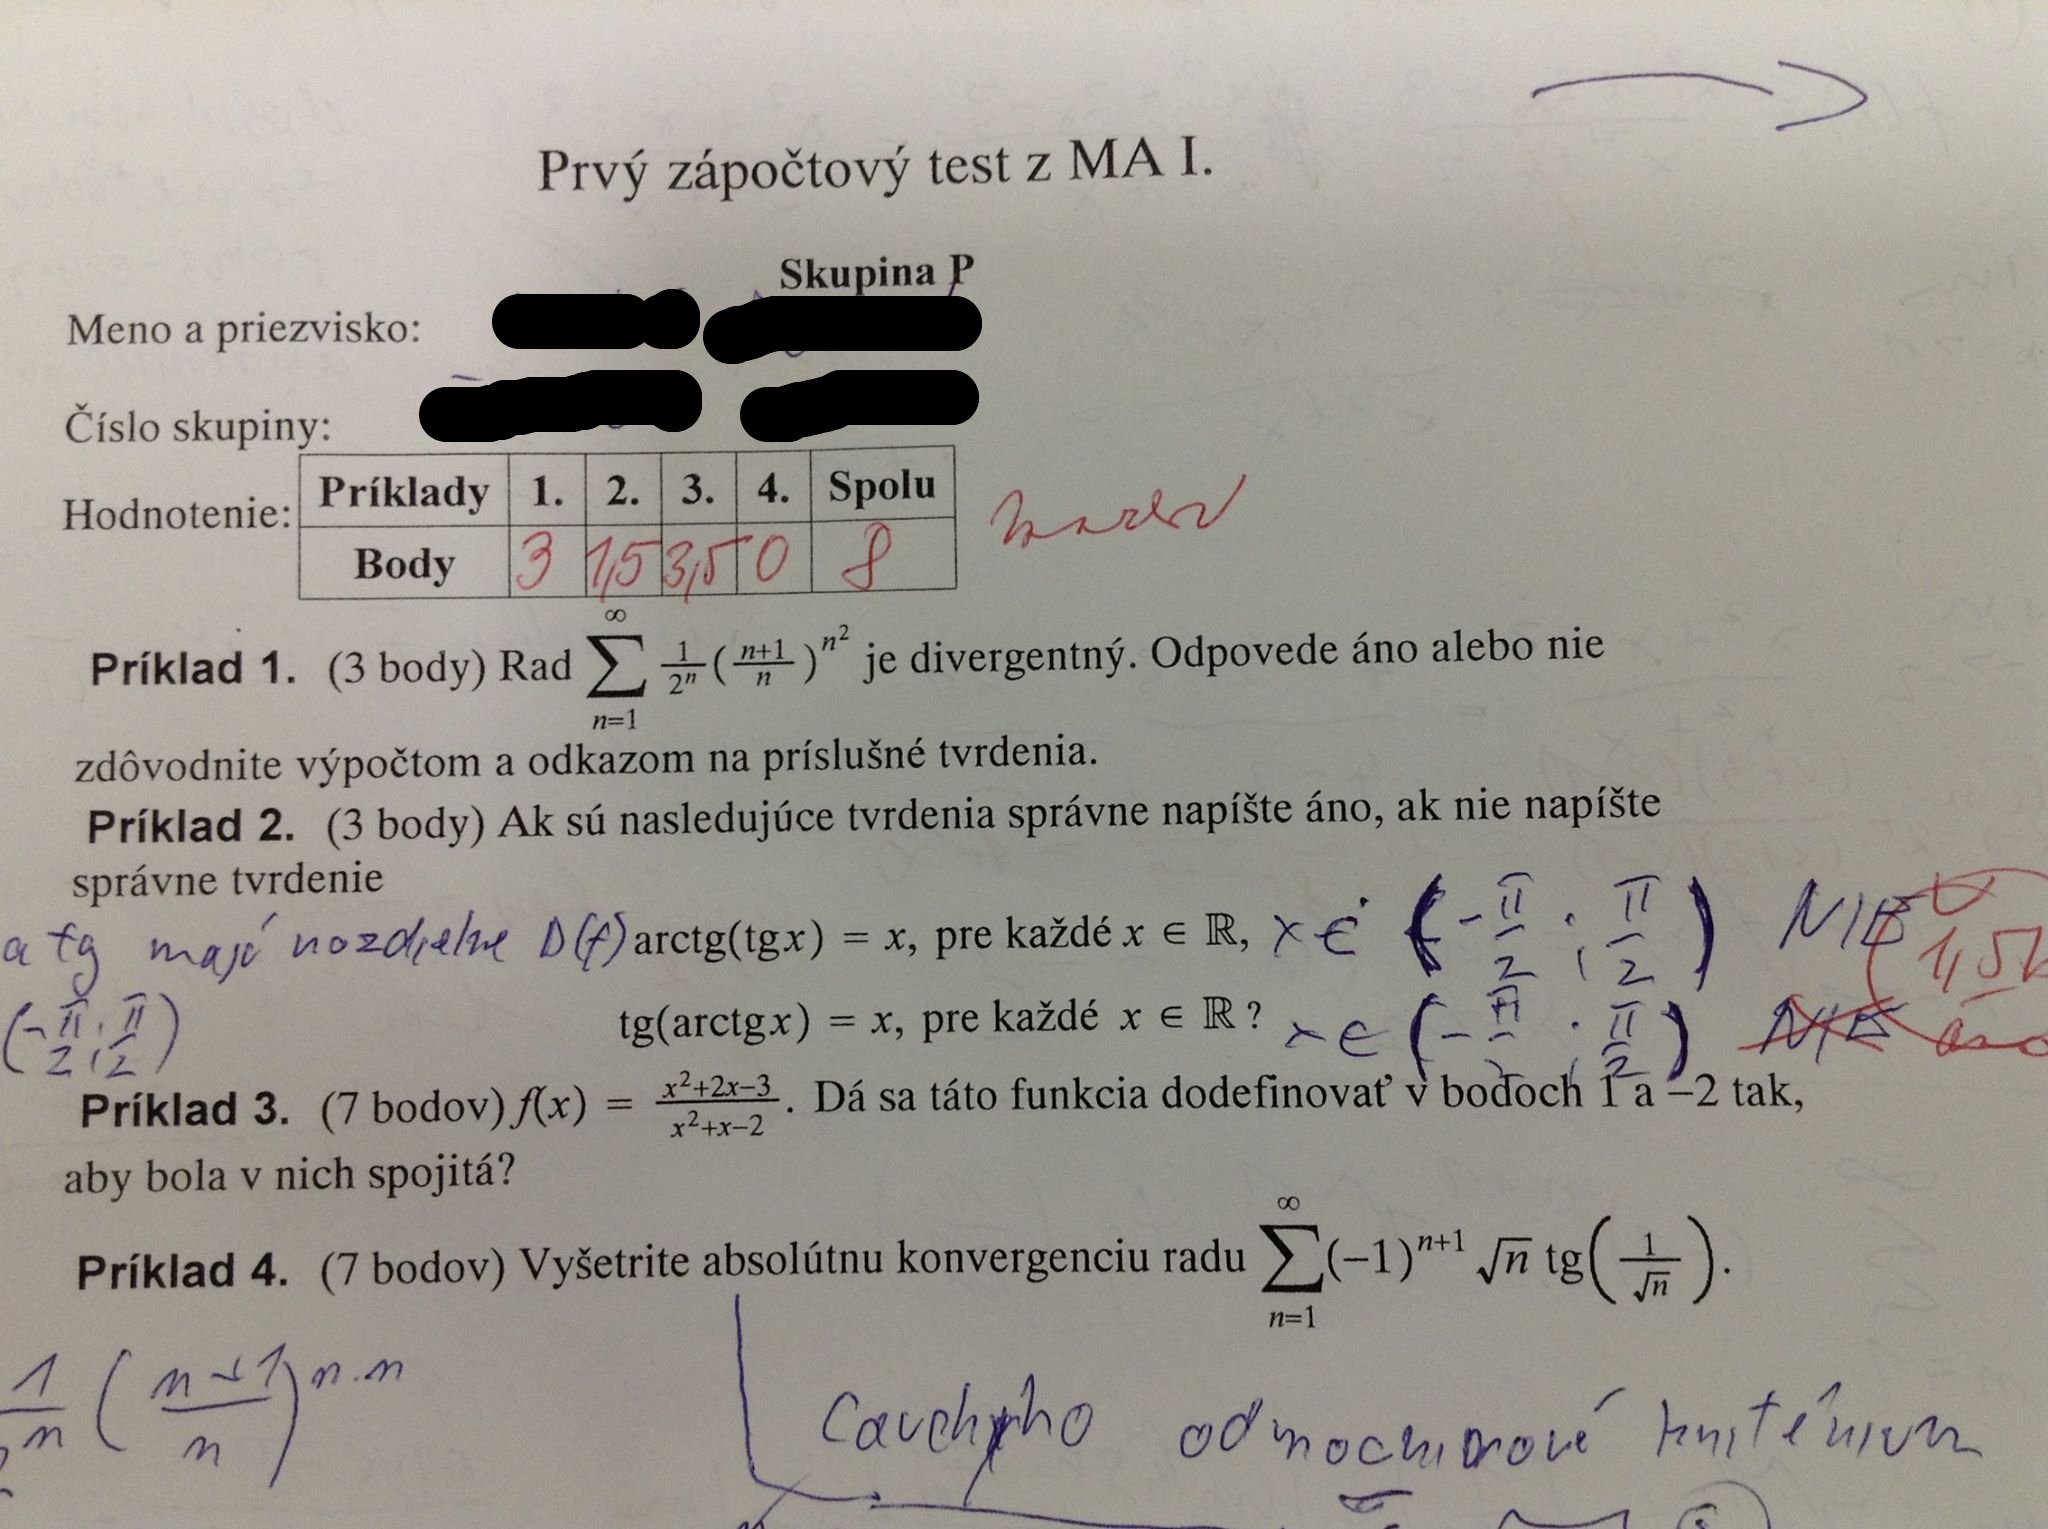 Prvý zápočtový test z MA I.
Skupina P
Meno a priezvisko:
Číslo skupiny:
Hodnotenie:
Príklady 1. 2. 3. 4. Spolu
Body 3 1,5 3,5 0 8
Príklad 1. (3 body) Rad ∑_{n=1}^{∞} 1/2ⁿ ((n+1)/n)^{n²} je divergentný. Odpovede áno alebo nie
zdôvodnite výpočtom a odkazom na príslušné tvrdenia.
Príklad 2. (3 body) Ak sú nasledujúce tvrdenia správne napíšte áno, ak nie napíšte
správne tvrdenie
a tg majú rozdielne D(f) arctg(tgx) = x, pre každé x ∈ ℝ, x ∈ (-π/2; π/2) NIE
1,5b
(-π/2; π/2) tg(arctgx) = x, pre každé x ∈ ℝ? x ∈ (-π/2; π/2) NIE áno
Príklad 3. (7 bodov) f(x) = (x²+2x−3)/(x²+x−2). Dá sa táto funkcia dodefinovať v bodoch 1 a −2 tak,
aby bola v nich spojitá?
Príklad 4. (7 bodov) Vyšetrite absolútnu konvergenciu radu ∑_{n=1}^{∞} (−1)^{n+1} √n tg(1/√n).
((n+1)/n)^{n·n} Cauchyho odmocninové kritérium